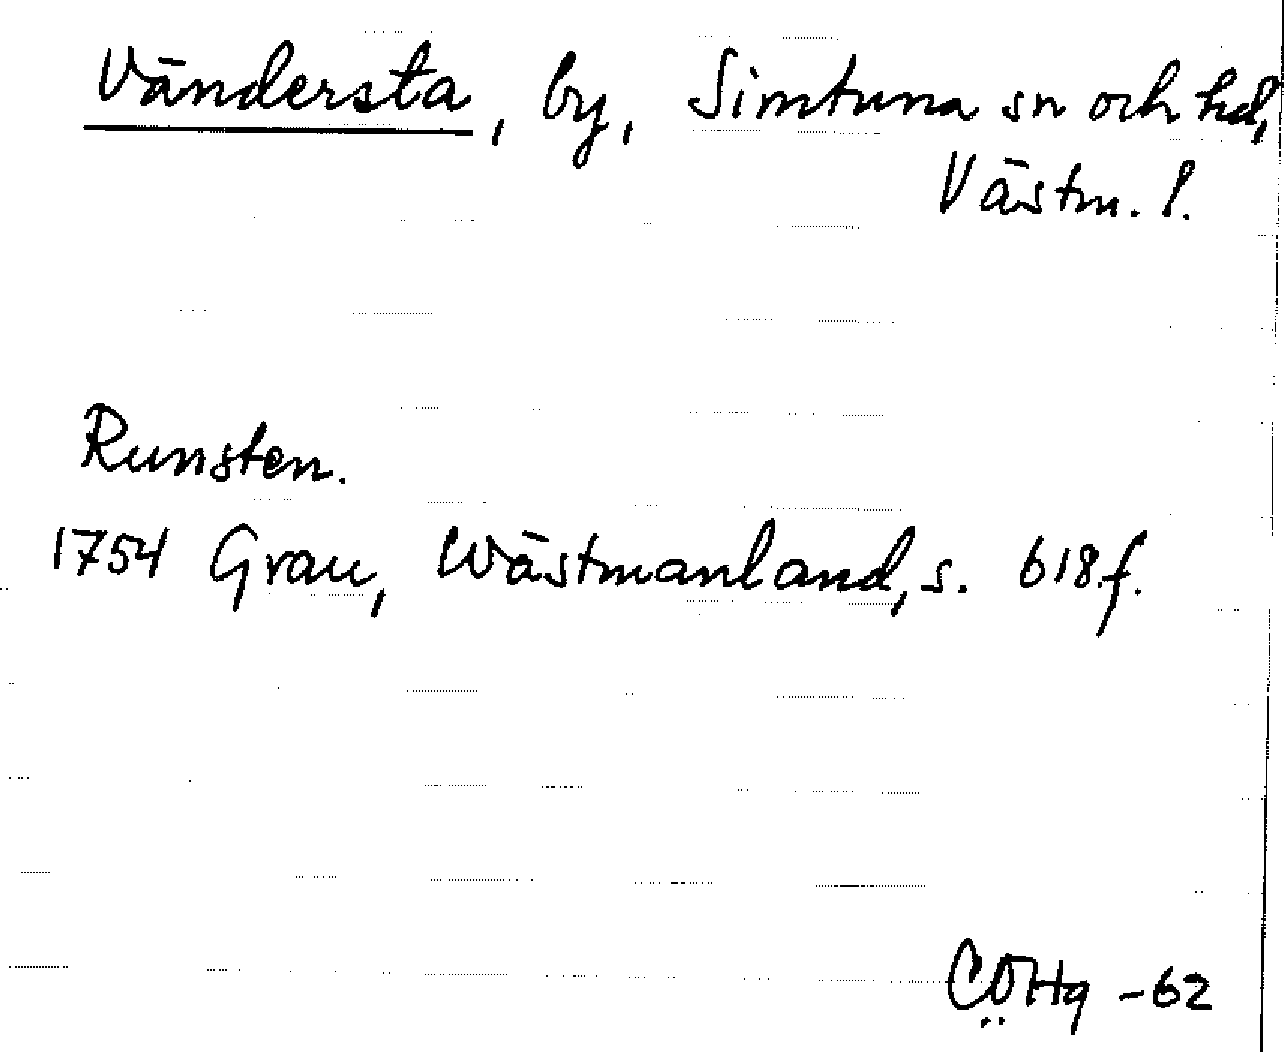 Vändersta, by, Simtuna sn och hd,
Västm. l.
Runsten.
1754 Grau, Wästmanland, s. 618 f.
CÖHg -62